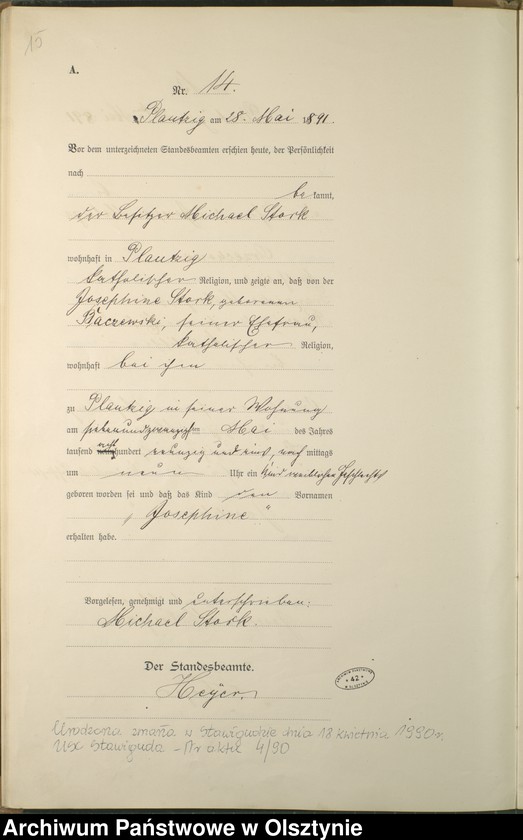 15
A.
Nr. 14.
Plautzig am 28. Mai 1891.
Vor dem unterzeichneten Standesbeamten erschien heute, der Persönlichkeit
nach
be kannt,
der Besitzer Michael Stork
wohnhaft in Plautzig
katholischer Religion, und zeigte an, daß von der
Josephine Stork, geborenen
Baczewski, seiner Ehefrau,
katholischer Religion,
wohnhaft bei ihm
zu Plautzig in seiner Wohnung
am siebenundzwanzigsten Mai des Jahres
tausend acht hundert neunzig und eins, nach mittags
um neun Uhr ein Kind weiblichen Geschlechts
geboren worden sei und daß das Kind den Vornamen
„Josephine“
erhalten habe.
Vorgelesen, genehmigt und unterschrieben:
Michael Stork.
Der Standesbeamte.
Heyer.
42
Urodzona zmarła w Stawigudzie dnia 18 kwietnia 1990r.
USC Stawiguda - Nr aktu 4/90
Archiwum Państwowe w Olsztynie